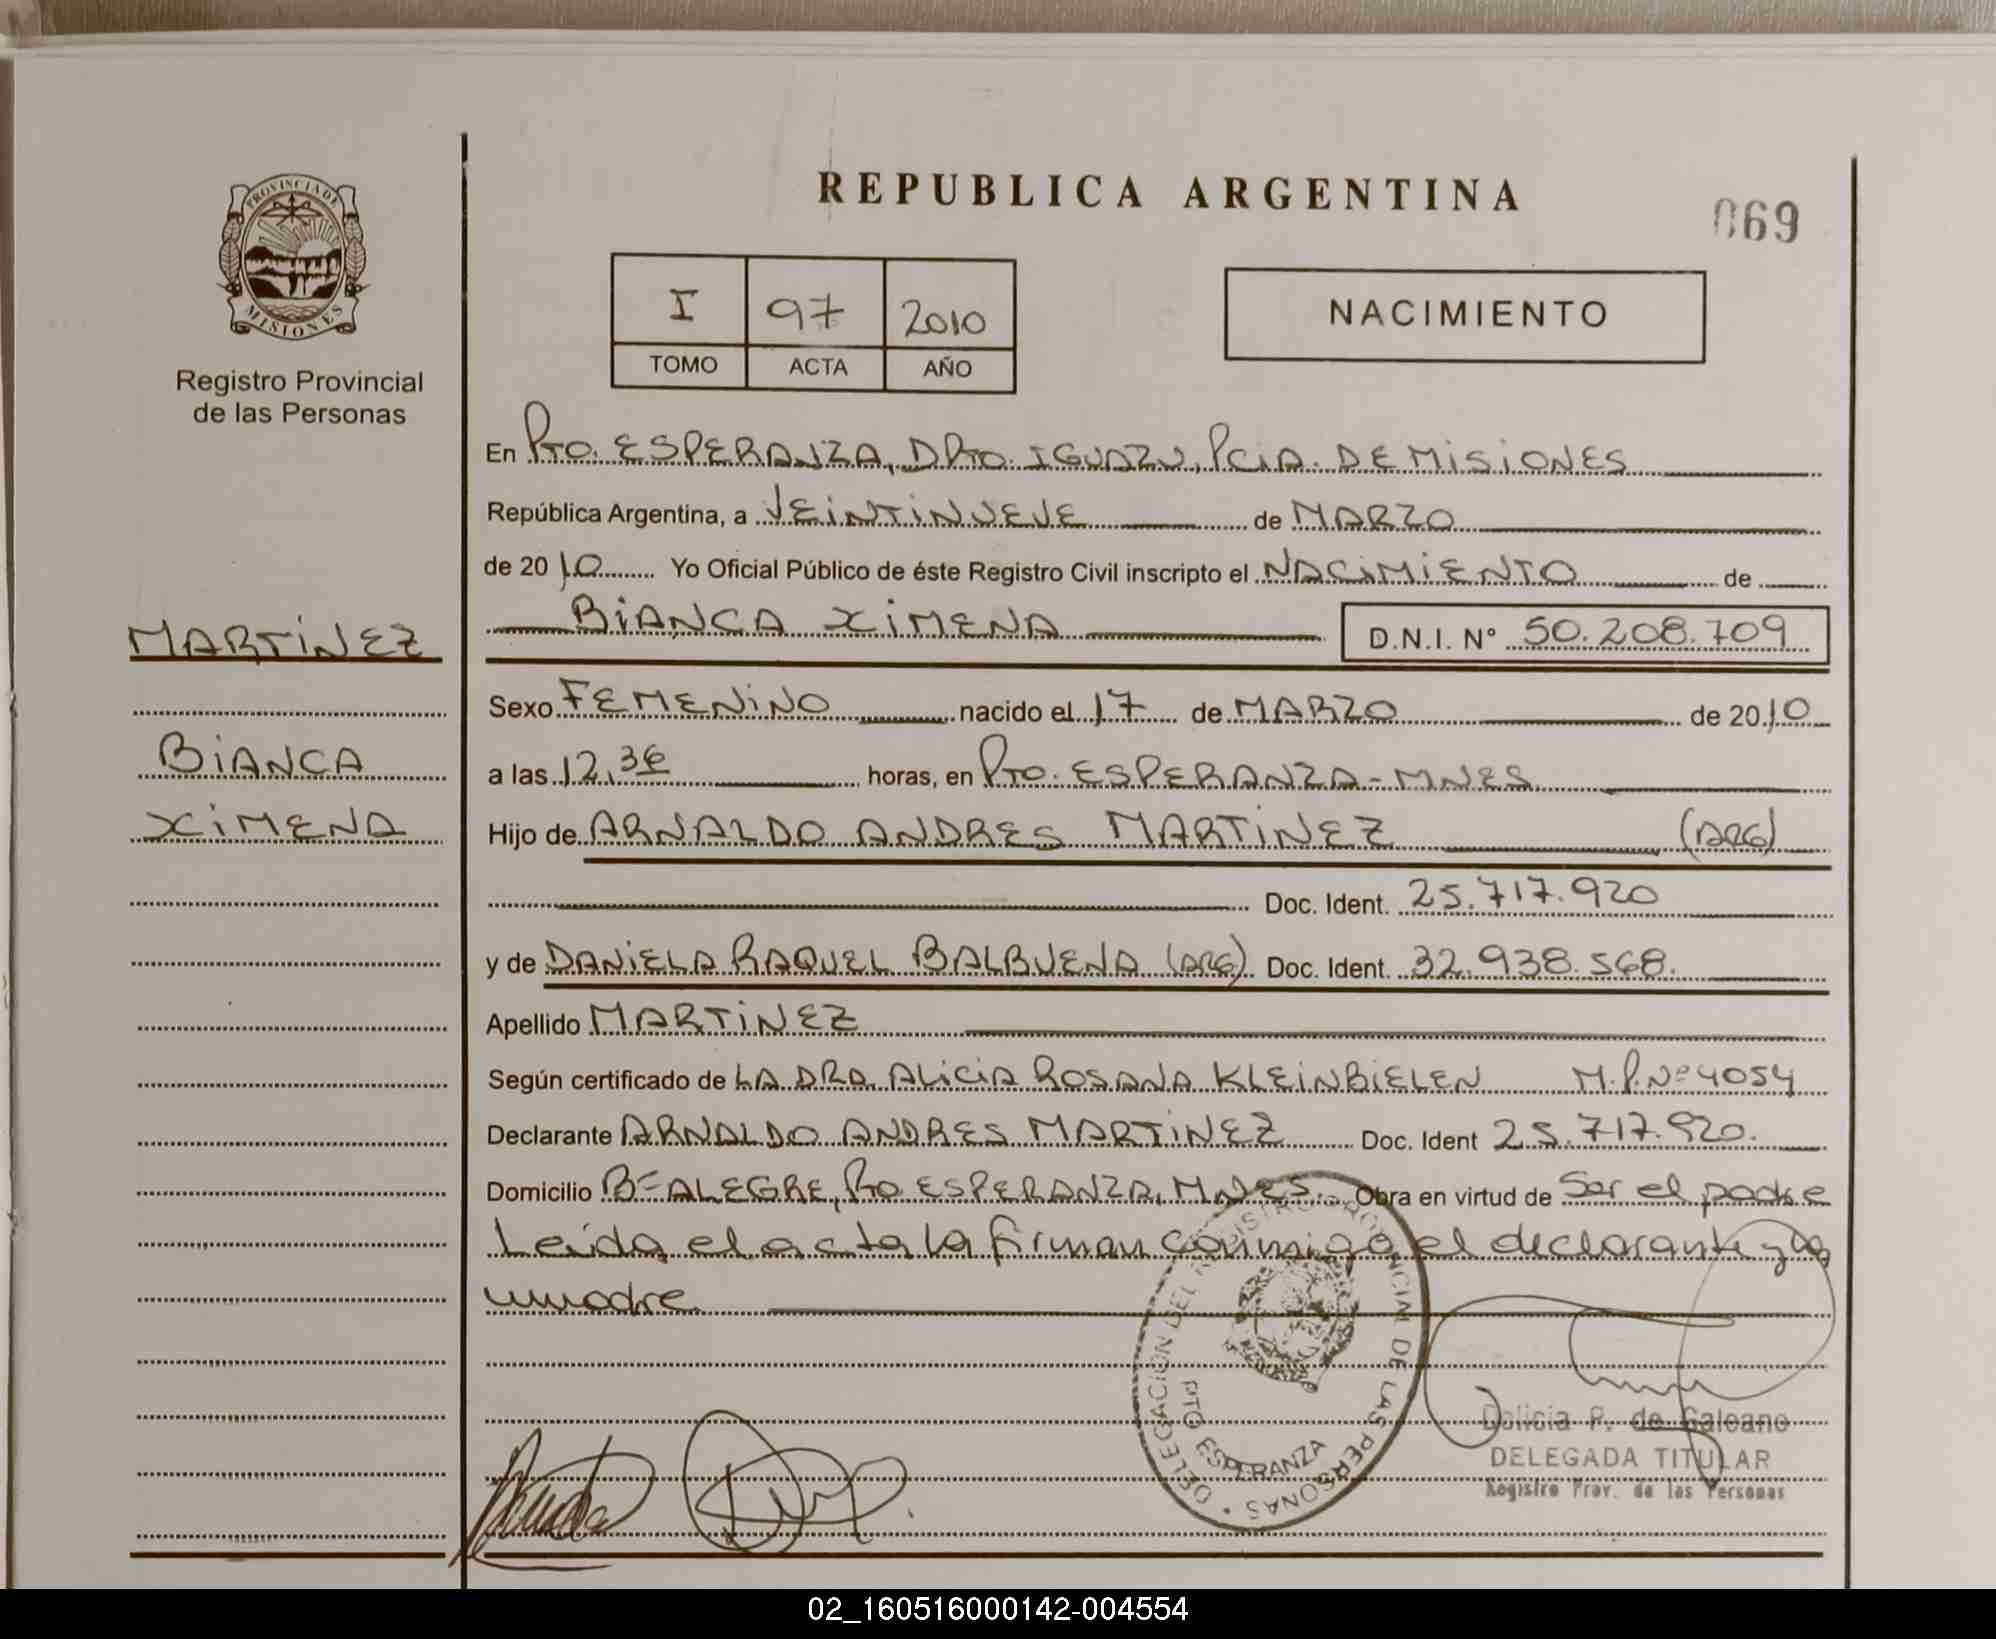 REPUBLICA ARGENTINA
069
PROVINCIA DE
MISIONES
Registro Provincial
de las Personas
I 97 2010
TOMO ACTA AÑO
NACIMIENTO
En Pto. ESPERANZA, DPto. IGUAZU, PCiA. DE MiSiONES
República Argentina, a VEiNTiNUEVE de MARZO
de 2010 Yo Oficial Público de éste Registro Civil inscripto el NACiMiENTO de
BiANCA XiMENA D.N.I. N° 50.208.709
MARTiNEZ
BiANCA
XiMENA
Sexo FEMENiNO nacido el 17 de MARZO de 2010
a las 12,36 horas, en Pto. ESPERANZA-MNES
Hijo de ARNALDO ANDRES MARTiNEZ (ARG)
Doc. Ident. 25.717.920
y de DANiELA RAQUEL BALBUENA (ARG) Doc. Ident. 32.938.568.
Apellido MARTiNEZ
Según certificado de LA DRA. ALiCiA ROSANA KLEiNBiELEN M.P.Nº 4054
Declarante ARNALDO ANDRES MARTiNEZ Doc. Ident 25.717.920.
Domicilio Bº ALEGRE, Pto ESPERANZA, MNES. Obra en virtud de Ser el padre
Leída el acta la firman conmigo el declarante y la
madre
DELEGACION DEL REGISTRO PROVINCIAL DE LAS PERSONAS
PTO ESPERANZA
Dolicia P. de Galeano
DELEGADA TITULAR
Registro Prov. de las Personas
02_160516000142-004554